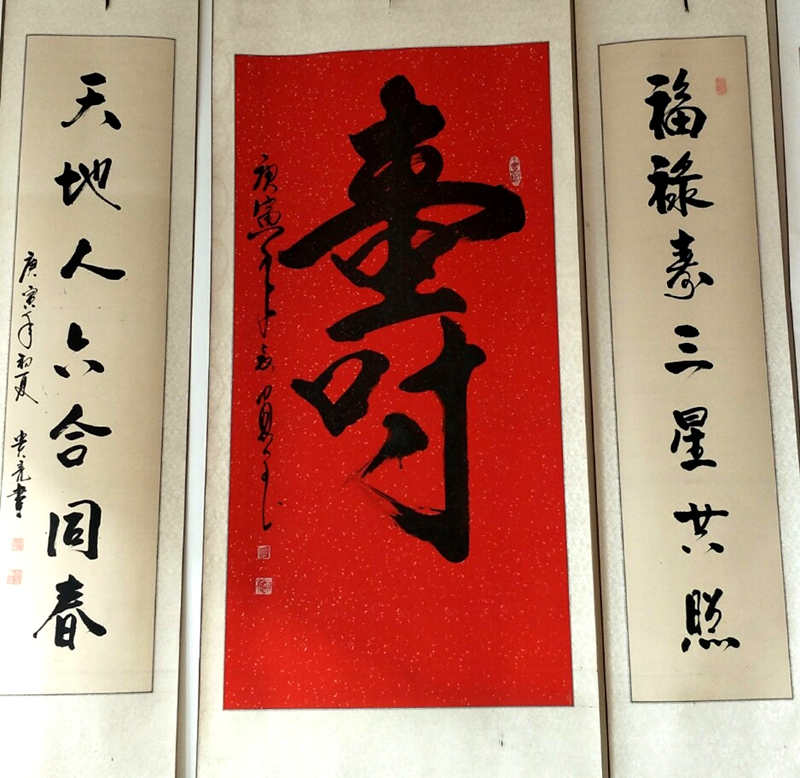 福禄寿三星共照
壽
庚寅年夏
天地人六合同春
庚寅年初夏
贵亮書